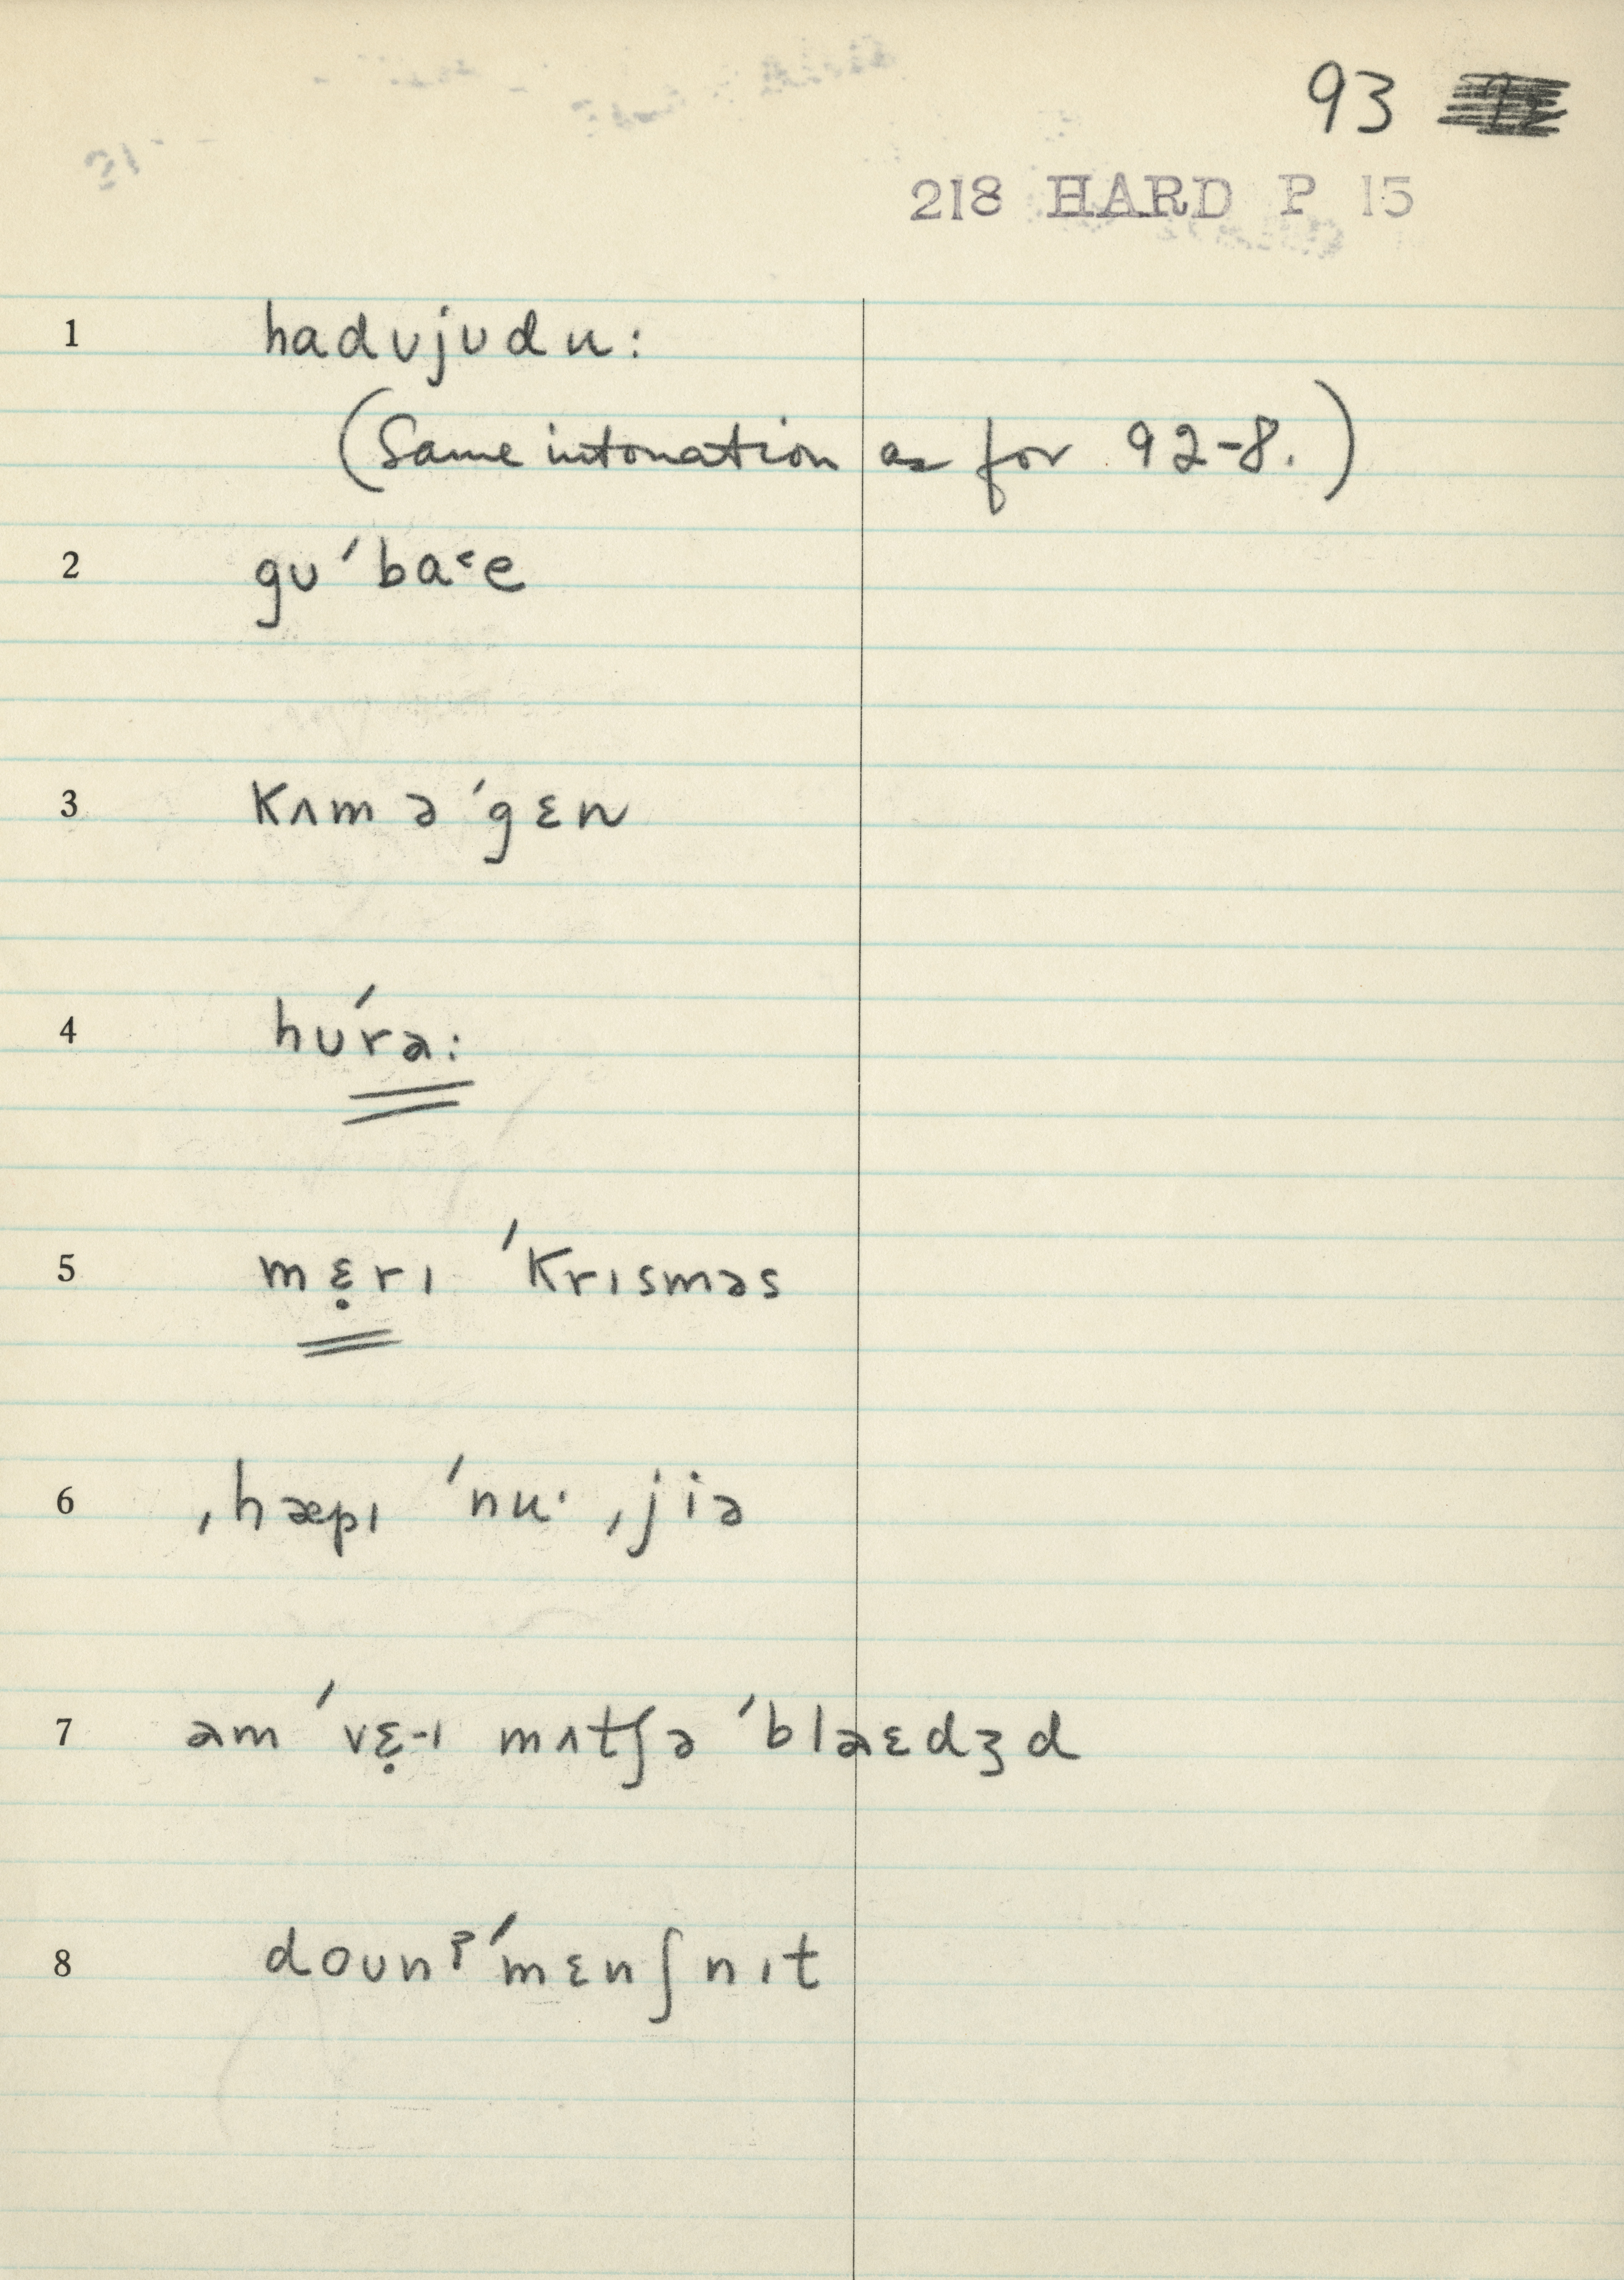 93
218 HARD P 15
1 hadʊjʊdu:
(Same intonation as for 92-8.)
2 gʊ'baᵋe
3 kʌm ə'gɛn
4 hʊ'rɑ:
5 mɛ̣rɪ 'krɪsməs
6 ˌhæpɪ 'nu· ˌjiə
7 am 'vɛ̣-ɪ mʌtʃə 'blaɛdʒd
8 doʊnˀ'mɛnʃnɪt